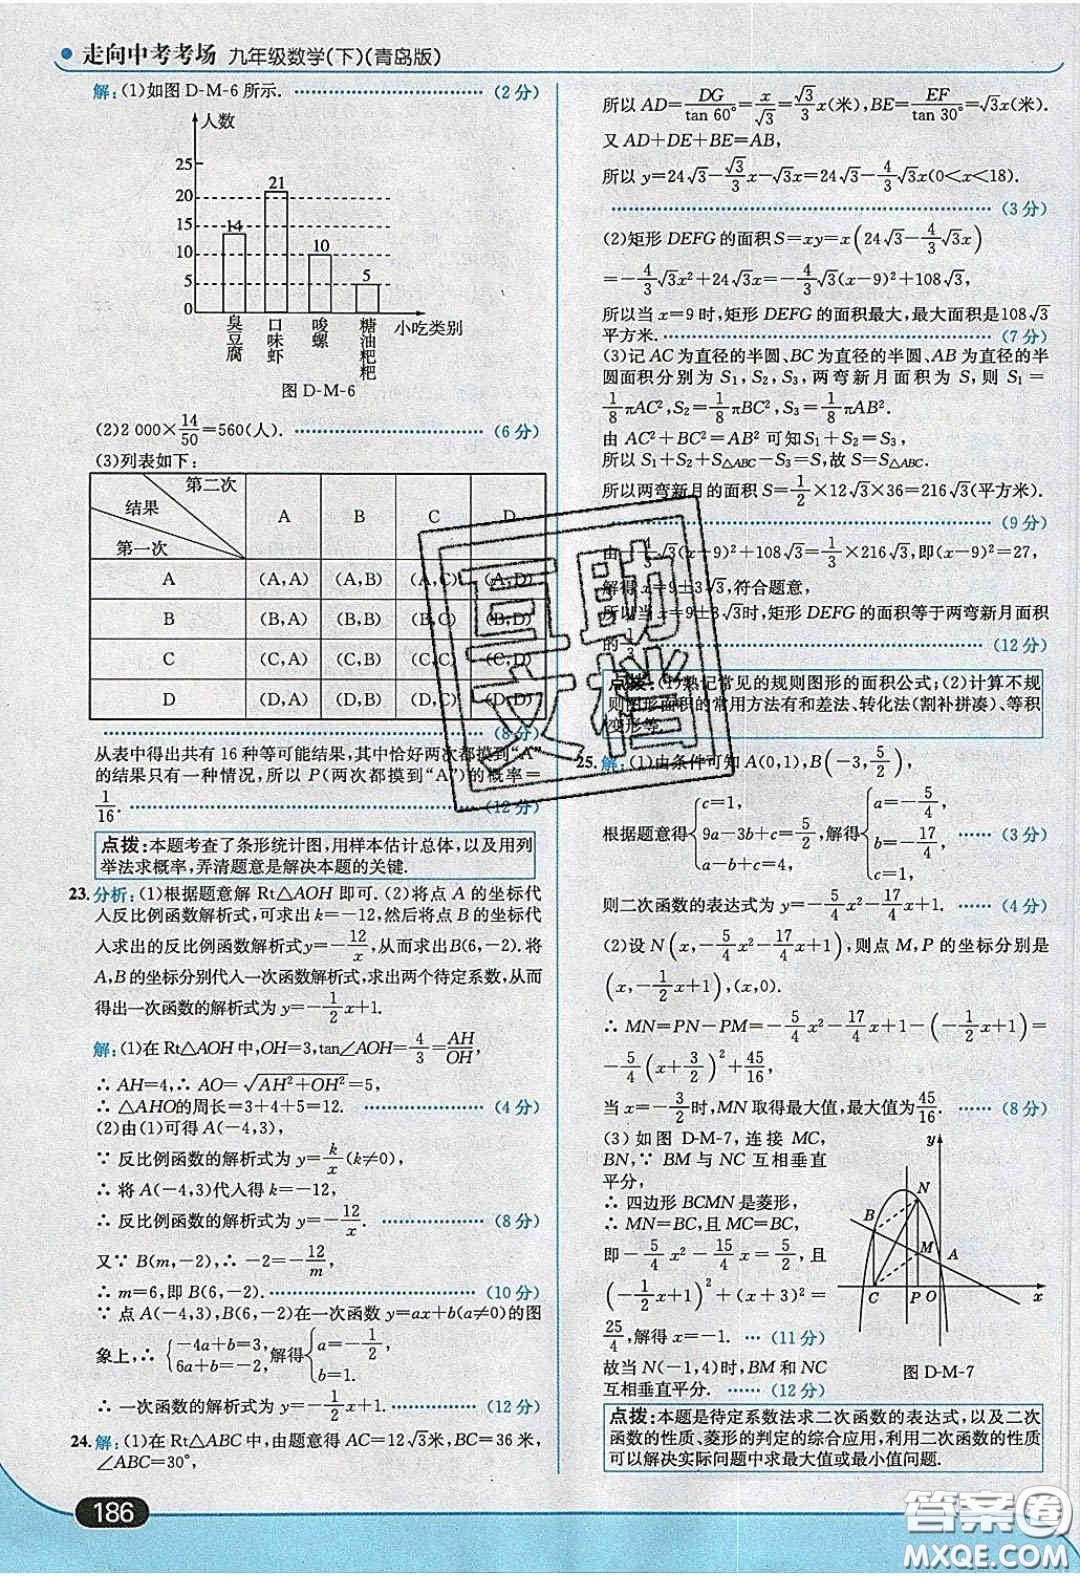 走向中考考场 九年级数学(下)(青岛版)
解:(1)如图 D-M-6 所示. (2分)
人数
25
20
15
10
5
0
14
21
10
5
臭豆腐
口味虾
唆螺
糖油粑粑
小吃类别
图 D-M-6
(2)2 000×14/50=560(人). (6分)
(3)列表如下:
第二次
结果
第一次
A B C D
A (A,A) (A,B) (A,C) (A,D)
B (B,A) (B,B) (B,C) (B,D)
C (C,A) (C,B) (C,C) (C,D)
D (D,A) (D,B) (D,C) (D,D)
(8分)
从表中得出共有 16 种等可能结果,其中恰好两次都摸到“A”
的结果只有一种情况,所以 P(两次都摸到“A”)的概率=
1/16. (12分)
点拨:本题考查了条形统计图,用样本估计总体,以及用列
举法求概率,弄清题意是解决本题的关键.
23.分析:(1)根据题意解 Rt△AOH 即可.(2)将点 A 的坐标代
入反比例函数解析式,可求出 k=-12,然后将点 B 的坐标代
入求出的反比例函数解析式y=-12/x,从而求出B(6,-2).将
A,B的坐标分别代入一次函数解析式,求出两个待定系数,从而
得出一次函数的解析式为 y=-1/2x+1.
解:(1)在 Rt△AOH 中,OH=3,tan∠AOH=4/3=AH/OH,
∴ AH=4,∴ AO=√(AH²+OH²)=5,
∴ △AHO的周长=3+4+5=12. (4分)
(2)由(1)可得 A(-4,3),
∵ 反比例函数的解析式为 y=k/x(k≠0),
∴ 将 A(-4,3)代入得 k=-12,
∴ 反比例函数的解析式为 y=-12/x. (8分)
又∵ B(m,-2),∴ -2=-12/m
∴ m=6,即 B(6,-2). (10分)
∵ 点 A(-4,3),B(6,-2)在一次函数 y=ax+b(a≠0)的图
象上,∴ {-4a+b=3, 6a+b=-2, 解得{a=-1/2, b=1.
∴ 一次函数的解析式为 y=-1/2x+1. (12分)
24.解:(1)在 Rt△ABC 中,由题意得 AC=12√3米,BC=36 米,
∠ABC=30°,
186
所以 AD=DG/tan 60°=x/√3=√3/3x(米),BE=EF/tan 30°=√3x(米).
又 AD+DE+BE=AB,
所以 y=24√3-√3/3x-√3x=24√3-4/3√3x(0<x<18).
(3分)
(2)矩形 DEFG 的面积 S=xy=x(24√3-4/3√3x)
=-4/3√3x²+24√3x=-4/3√3(x-9)²+108√3,
所以当 x=9 时,矩形 DEFG 的面积最大,最大面积是108√3
平方米. (7分)
(3)记 AC 为直径的半圆、BC 为直径的半圆、AB 为直径的半
圆面积分别为 S₁,S₂,S₃,两弯新月面积为 S,则 S₁=
1/8πAC²,S₂=1/8πBC²,S₃=1/8πAB².
由 AC²+BC²=AB² 可知S₁+S₂=S₃,
所以 S₁+S₂+S△ABC-S₃=S,故 S=S△ABC.
所以两弯新月的面积 S=1/2×12√3×36=216√3(平方米).
(9分)
由-4/3√3(x-9)²+108√3=1/3×216√3,即(x-9)²=27,
解得 x=9±3√3,符合题意,
所以当 x=9±3√3时,矩形 DEFG 的面积等于两弯新月面积
的1/3. (12分)
点拨:(1)熟记常见的规则图形的面积公式;(2)计算不规
则图形面积的常用方法有和差法、转化法(割补拼凑)、等积
变形等.
25.解:(1)由条件可知 A(0,1),B(-3,5/2),
根据题意得{c=1, 9a-3b+c=5/2, a-b+c=4, 解得{a=-5/4, b=-17/4, c=1, (3分)
则二次函数的表达式为 y=-5/4x²-17/4x+1. (4分)
(2)设 N(x,-5/4x²-17/4x+1),则点 M,P 的坐标分别是
(x,-1/2x+1),(x,0).
∴ MN=PN-PM=-5/4x²-17/4x+1-(-1/2x+1)=
-5/4(x+3/2)²+45/16,
当 x=-3/2时,MN 取得最大值,最大值为45/16. (8分)
(3)如图 D-M-7,连接 MC,
BN,∵ BM 与 NC 互相垂直
平分,
∴ 四边形 BCMN 是菱形,
∴ MN=BC,且 MC=BC,
即-5/4x²-15/4x=5/2,且
(-1/2x+1)²+(x+3)²=
25/4,解得 x=-1. (11分)
故当 N(-1,4)时,BM 和 NC
互相垂直平分. (12分)
y
N
B
M
A
C P O
x
图 D-M-7
点拨:本题是待定系数法求二次函数的表达式,以及二次
函数的性质、菱形的判定的综合应用,利用二次函数的性质
可以解决实际问题中求最大值或最小值问题.
答案卷
MXQE.COM